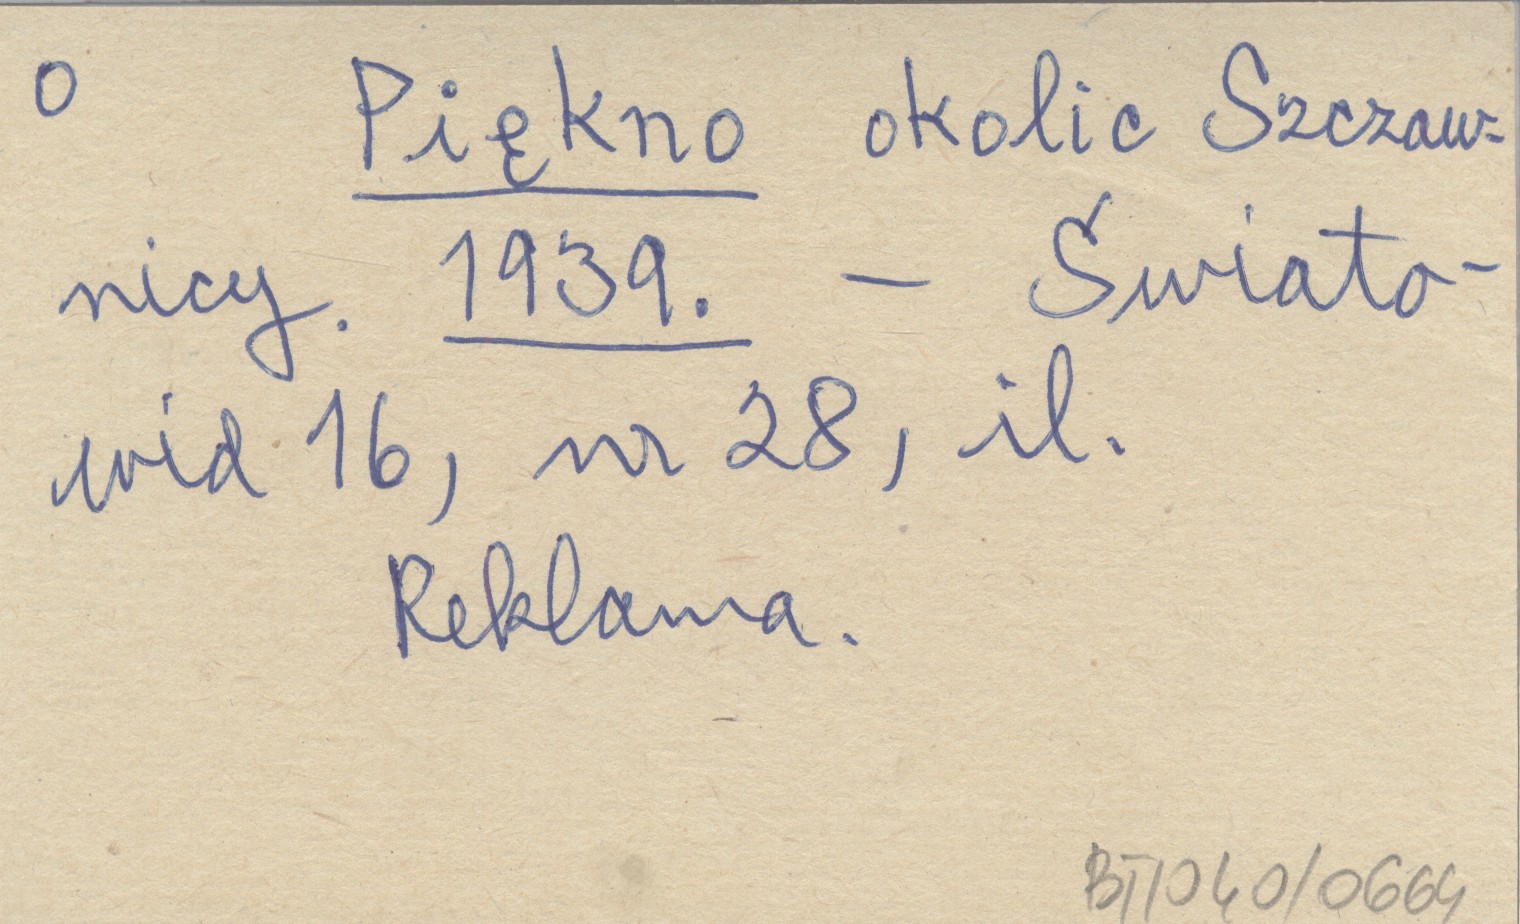 o Piękno okolic Szczaw-
nicy. 1939. – Świato-
wid 16, nr 28, il.
Reklama.
BT/040/0664